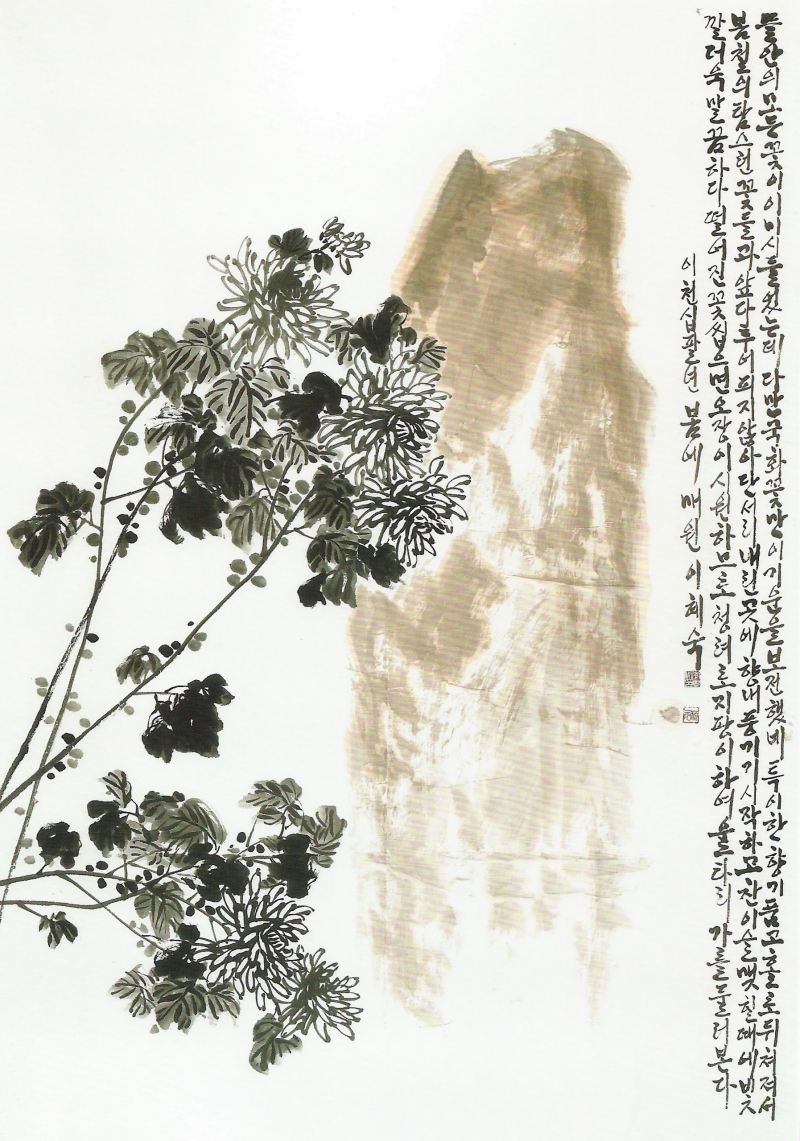 뜰안의 모든 꽃이 이미 시들었는데 다만 국화꽃만이 기운을 보전했네 특이한 향기 품고 홀로 뒤쳐져서
봄철의 탐스런 꽃들과 앞다투어 피지 않아 단서리 내린 곳에 향내 풍기기 시작하고 찬이슬 맺힌 때에 빛
깔 더욱 말꼼하다 떨어진 꽃 씹으면 오장이 시원하므로 청려로 지팡이 하여 울타리 가를 둘러본다
이천십팔년 봄에 매원 이희숙